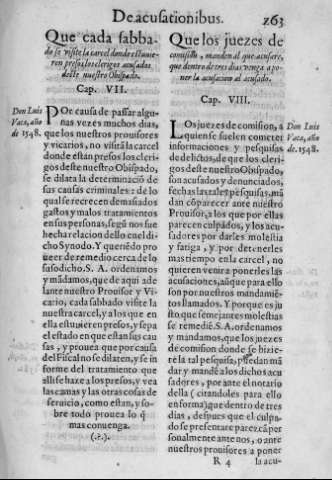 De acusationibus. 263
Que cada sabba-
do se visite la carcel donde estuuie-
ren presos los clerigos acusados
deste nuestro Obispado.
Cap. VII.
Don Luis
Vaca, año
de 1548.
POr causa de passar algu-
nas vezes muchos dias,
que los nuestros prouisores
y vicarios, no visitã la carcel
donde estan presos los cleri-
gos deste nuestro Obispado,
se dilata la determinaciõ de
sus causas criminales: de lo
qual se recrecen demasiados
gastos y malos tratamientos
en sus personas, segũ nos fue
hecha relacion en el di-
cho Synodo. Y queriẽdo pro
ueer de remedio cerca de lo
susodicho. S. A. ordenamos
y mãdamos, que de aqui ade
lante nuestro Prouisor y Vi-
cario, cada sabbado visite la
nuestra carcel, y a los que en
ella estuuieren presos, y sepa
el estado en que estan sus cau
sas, y prouea que por causa
del Fiscal no se dilaten, y se in
forme del tratamiento que
alli se haze a los presos, y vea
las camas y las otras cosas de
seruicio, como estan, y so-
bre todo prouea lo q̃
mas conuenga.
(.?.)
Que los juezes de
comission, manden al que acusare,
que dentro de tres dias venga a po-
ner la acusacion al acusado.
Cap. VIII.
Don Luis
Vaca, año
de. 1548.
LOs juezes de comision, a
quien se suelen cometer
informaciones y pesquisas
de delictos, de que los cleri-
gos deste nuestro Obispado,
son acusados y denunciados,
fechas las tales pesquisas, mã
dan cõparecer ante nuestro
Prouisor, a los que por ellas
parecen culpados, y los acu-
sadores por darles molestia
y fatiga, y por detenerles
mas tiempo en la carcel, no
quieren venir a ponerles las
acusaciones, aũque para ello
son por nuestros mandamiẽ
tos llamados. Y porque es ju
sto que semejantes molestias
se remediẽ. S. A. ordenamos
y mandamos, que los juezes
de comision donde se hizie-
re la tal pesquisa, puedan mã
dar y mandẽ a los dichos acu
sadores, par ante el notario
della (citandoles para ello
en forma) que dentro de tres
dias, despues que el culpa-
do se presentare parezcã per
sonalmente ante nos, o ante
nuestros prouisores a poner
R 4 la acu-